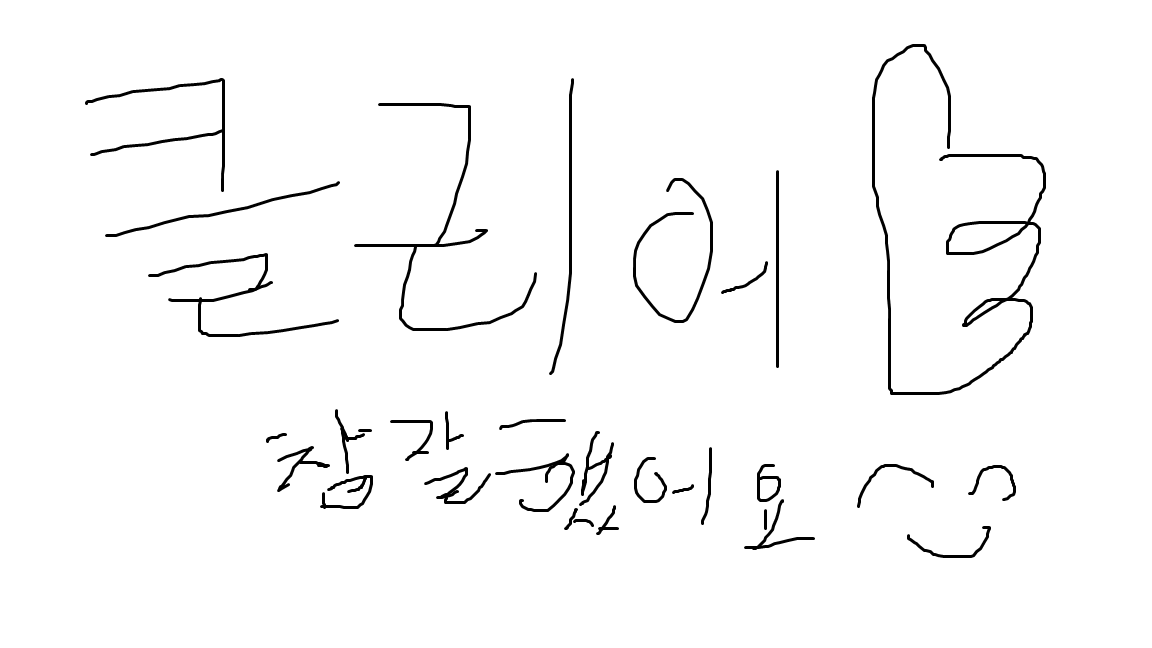 클리어
참 잘했어요